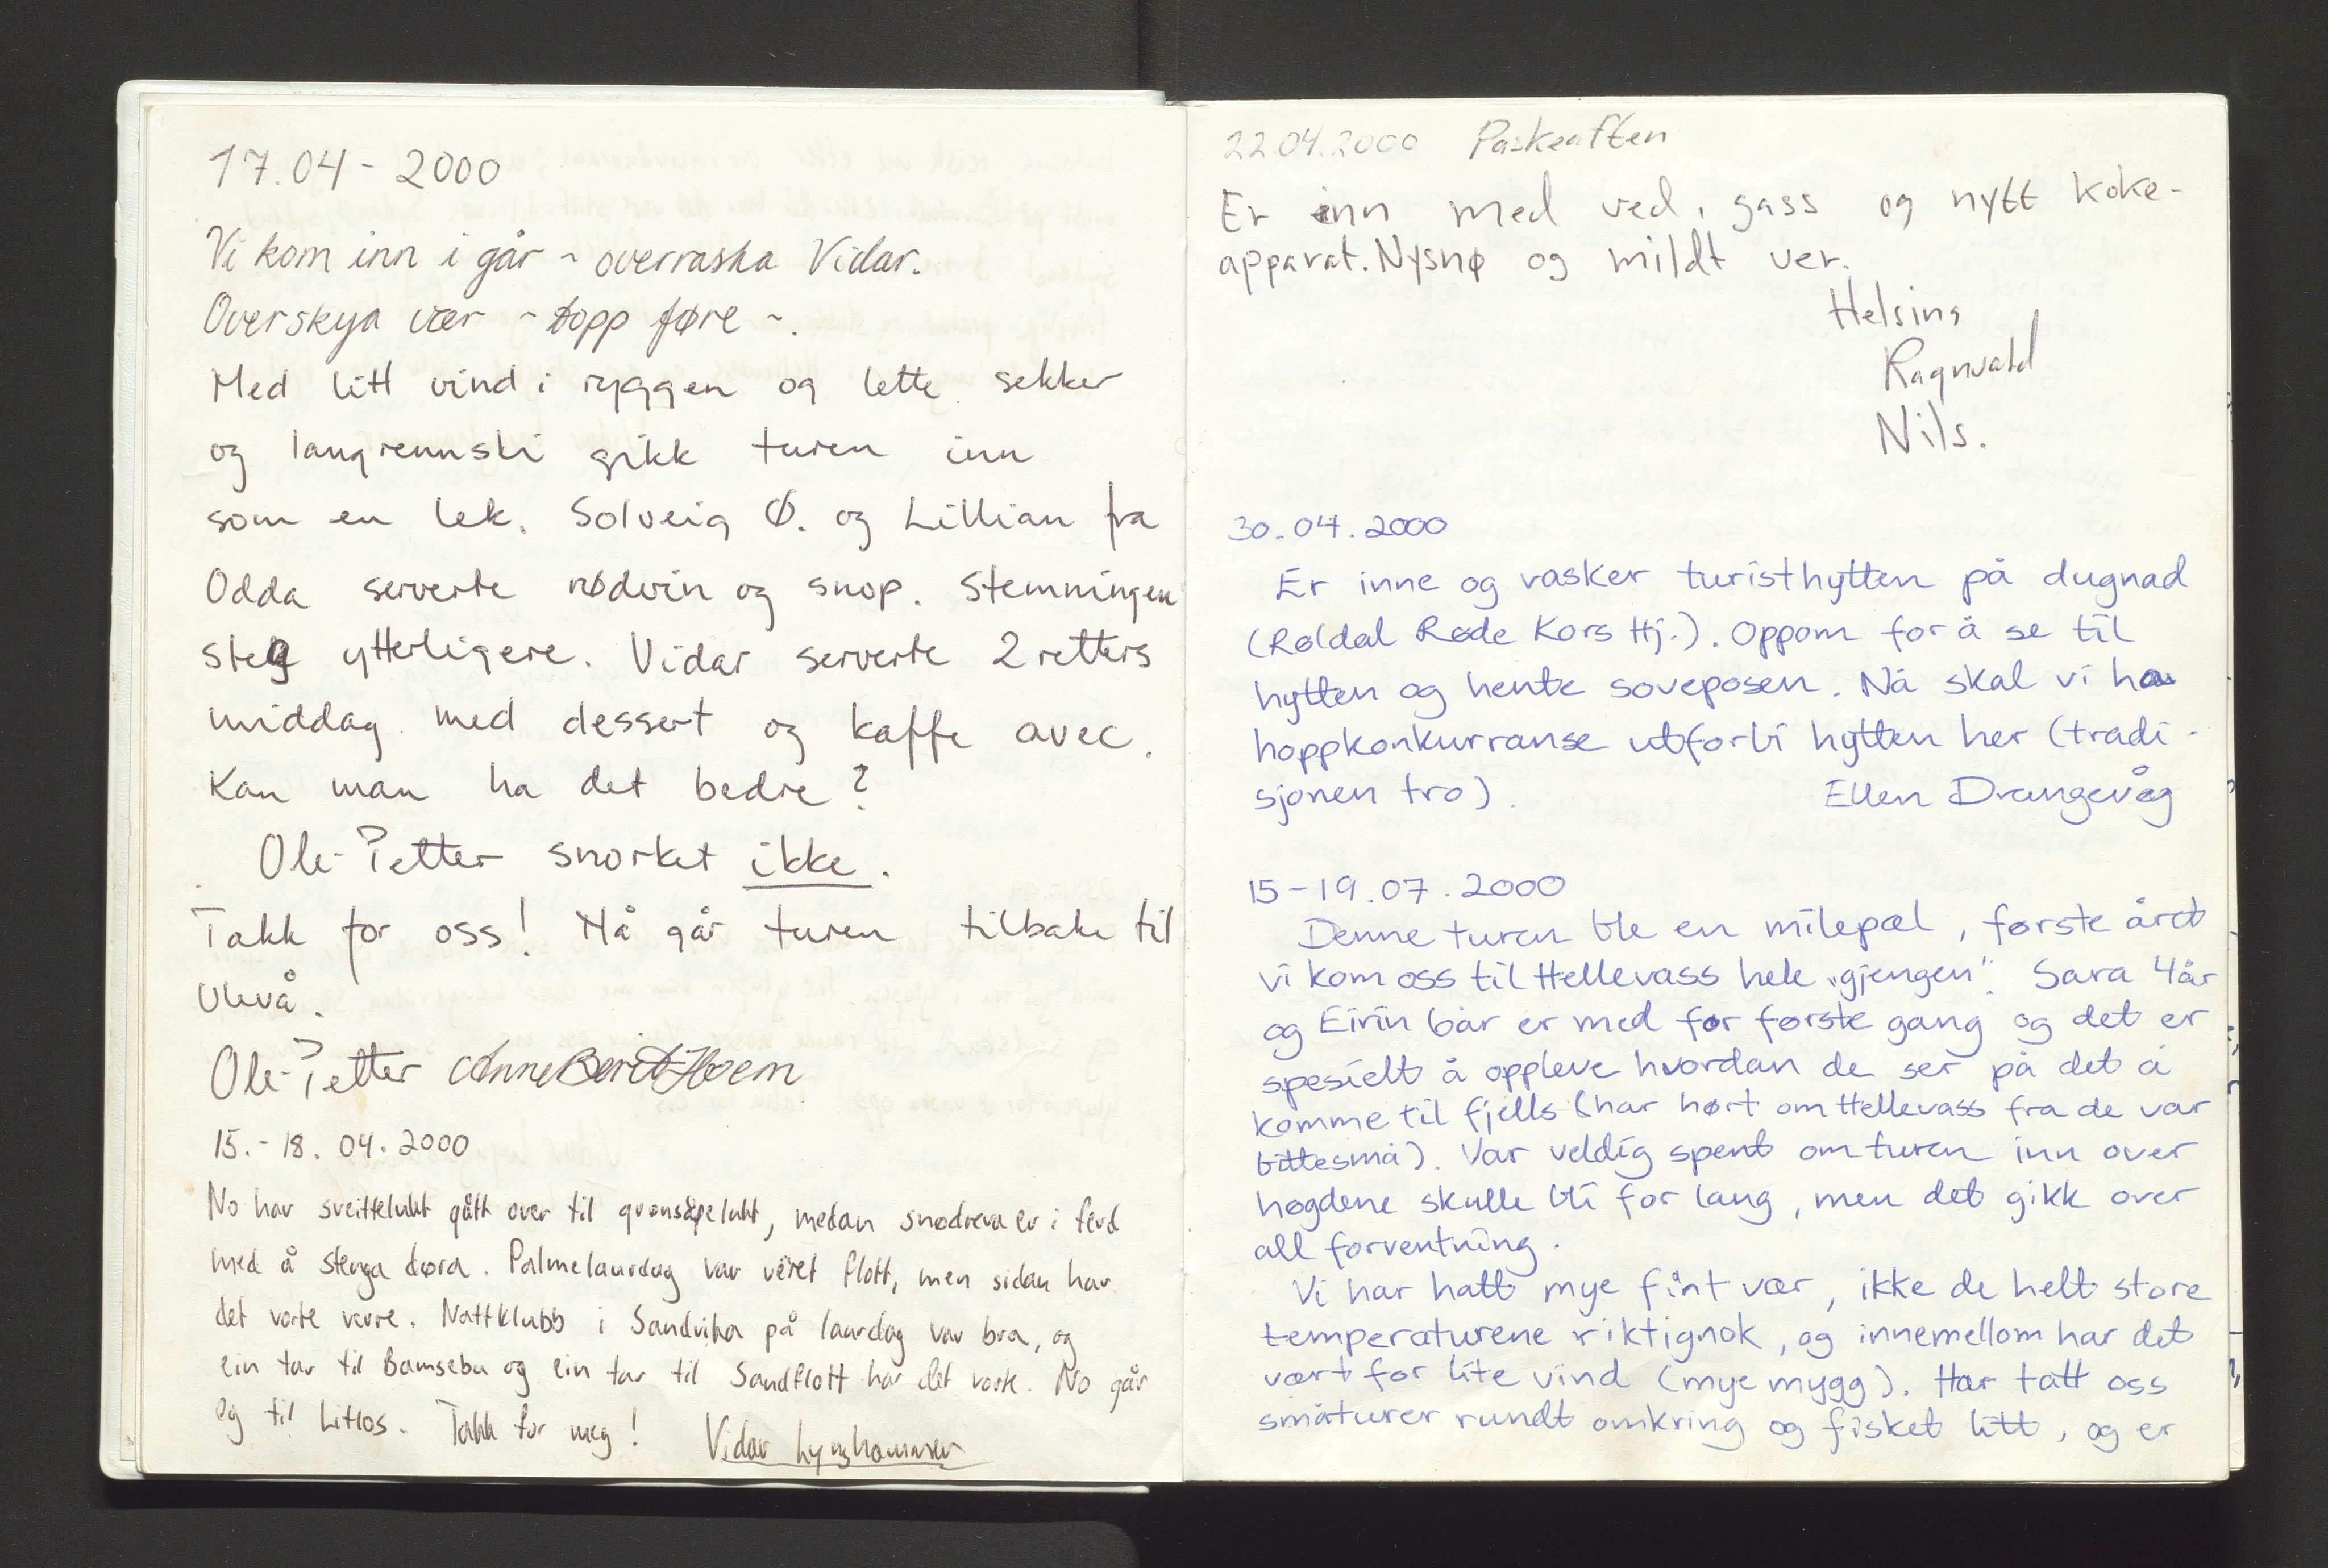 17.04 - 2000
Vi kom inn i går ~ overraska Vidar.
Overskya vær ~ topp føre ~.
Med litt vind i ryggen og lette sekker
og langrennski gikk turen inn
som en lek. Solveig Ø. og Lillian fra
Odda serverte rødvin og snop. Stemningen
steg ytterligere. Vidar serverte 2 retters
middag med dessert og kaffe avec.
Kan man ha det bedre?
Ole-Petter snorket ikke.
Takk for oss! Nå går turen tilbake til
Ulevå.
Ole-Petter Anne Berit Hoem
15.-18. 04. 2000
No har sveittelukt gått over til grønsåpelukt, medan snødreva er i ferd
med å stenga døra. Palmelaurdag var vêret flott, men sidan har
det vorte verre. Nattklubb i Sandvika på laurdag var bra, og
ein tur til Bamsebu og ein tur til Sandflott har det vorte. No går
eg til Litlos. Takk for meg! Vidar Lynghammer
22.04.2000 Påskeaften
Er inn med ved, gass og nytt koke-
apparat. Nysnø og mildt ver.
Helsing
Ragnvald
Nils.
30.04.2000
Er inne og vasker turisthytten på dugnad
(Røldal Røde Kors Hj.). Oppom for å se til
hytten og hente soveposen. Nå skal vi ha
hoppkonkurranse utforbi hytten her (tradi-
sjonen tro). Ellen Drangevåg
15-19.07.2000
Denne turen ble en milepæl, første året
vi kom oss til Hellevass hele „gjengen". Sara 4år
og Eirin 6år er med for første gang og det er
spesielt å oppleve hvordan de ser på det å
komme til fjells (har hørt om Hellevass fra de var
bittesmå). Var veldig spent om turen inn over
høgdene skulle bli for lang, men det gikk over
all forventning.
Vi har hatt mye fint vær, ikke de helt store
temperaturene riktignok, og innemellom har det
vært for lite vind (mye mygg). Har tatt oss
småturer rundt omkring og fisket litt, og er